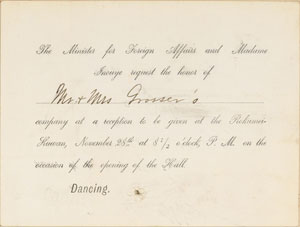 The Minister for Foreign Affairs and Madame
Inouye request the honor of
Mr & Mrs Grosser's
company at a reception to be given at the Rokumei-
Kuwan, November 28th at 8 1/2 o'clock, P. M. on the
occasion of the opening of the Hall.
Dancing.